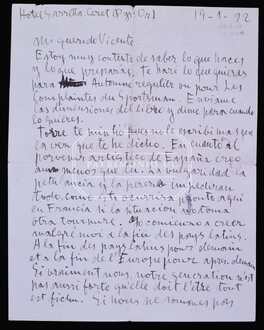 Hotel Garreta. Ceret (Pyr. Or.) 19-1-22
Mi querido Vicente
Estoy muy contento de saber lo que haces
y lo que preparas, te haré lo que quieras
para Automne regulier ou pour Les
Complaintes du Sportman. Envíame
las dimensiones del libro y dime para cuando
lo quieres.
Torre te mintió pues no le escribí mas que
la vez que te he dicho. En cuanto al
porvenir artístico de España creo
menos que tu. La vulgaridad la
petulancia y la pereza impedirán
todo, como esto ocurrirá pronto aquí
en Francia si la situación no toma
otra tournure. Comienzo a creer
malgré moi à la fin des pays latins.
A la fin des pays latins pour demain
et à la fin de l'Europe pour après demain
Si vraiment nous notre generation n'est
pas aussi forte qu'elle doit l'être tout
est fichu. Si nous ne sommes pas